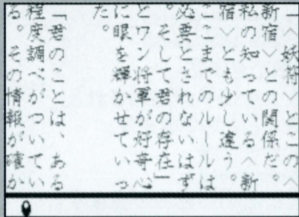 「〈妖符〉とこの〈
新宿〉との関係だ。
私の知っている〈新
宿〉とも少し違う。
ここまでのルールは
必要とされないはず
だ。そして君の存在」
とワン将軍が好奇心
に眼を輝かせていっ
た。
「君のことは、ある
程度調べがついてい
る。その情報が確か